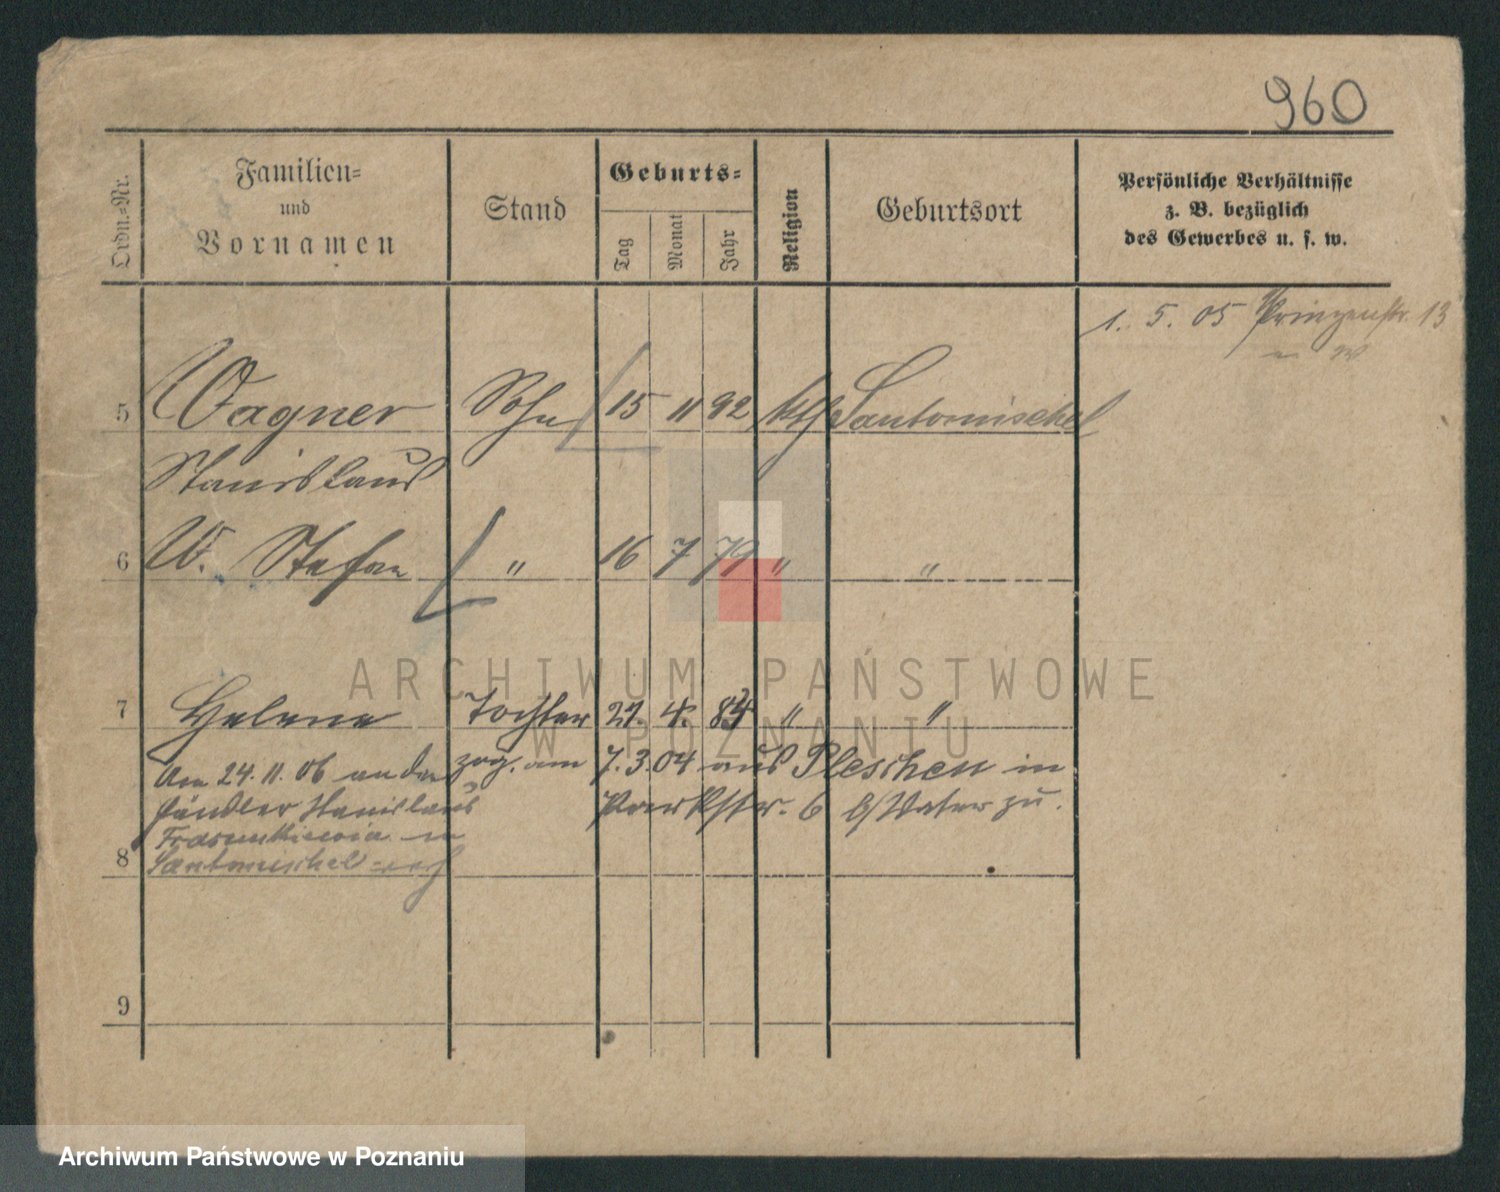 960
Ordn.-Nr.
Familien-
und
Vornamen
Stand
Geburts-
Tag
Monat
Jahr
Religion
Geburtsort
Persönliche Verhältnisse
z. B. bezüglich
des Gewerbes u. s. w.
1. 5. 05 Prinzenstr. 13
5 Wagner Sohn 15 11 92 kth Santomischel
Stanislaus
6 W. Stefan " 16 7 79 " "
7 Helene Tochter 21. 4. 84 " "
zog. am 7. 3. 04 aus Pleschen in
Parkstr. 6 b/Vater zu.
Am 24. 11. 06 an den
Händler Stanislaus
in
8 Santomischel
9
ARCHIWUM PAŃSTWOWE
W POZNANIU
Archiwum Państwowe w Poznaniu